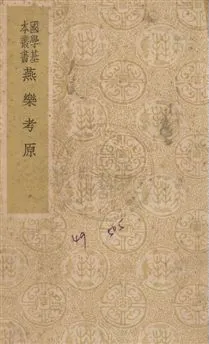 國學基
本叢書
燕樂考原
49 505